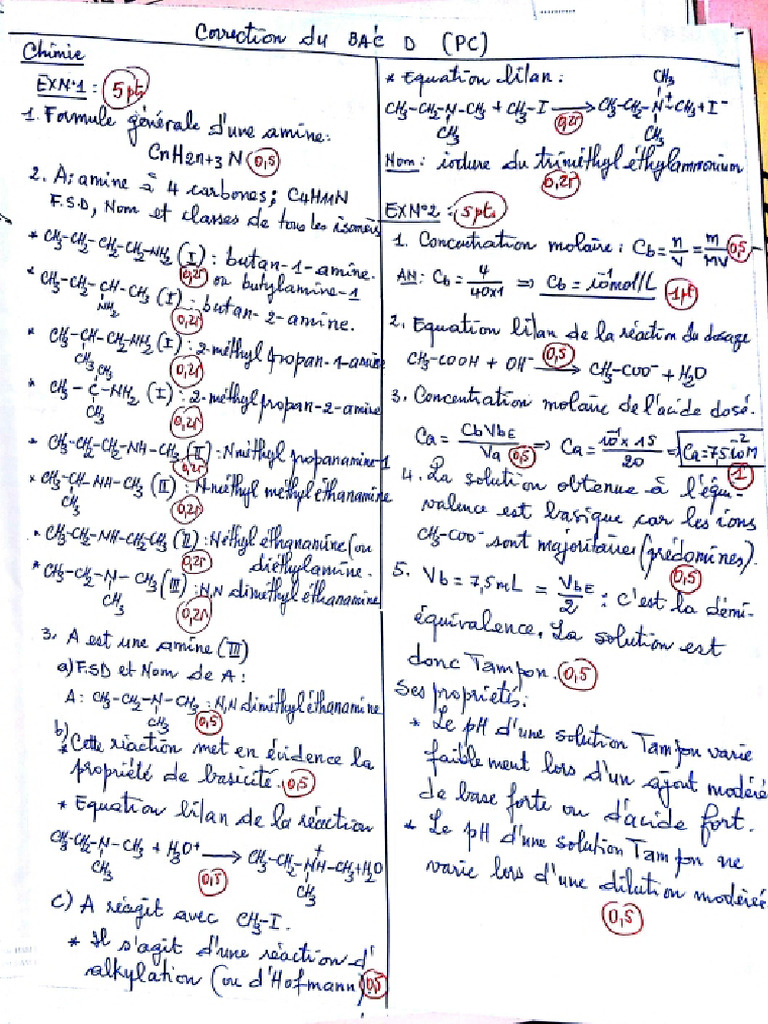 Correction du BAC D (PC)
Chimie
EXN°1 : 5pts
1. Formule générale d'une amine:
CnH2n+3 N 0,5
2. A: amine à 4 carbones; C4H11N
F.S.D, Nom et classes de tous les isomères
* CH3-CH2-CH2-CH2-NH2 (I) : butan-1-amine.
0,25 ou butylamine-1
* CH3-CH2-CH-CH3 (I) : butan-2-amine.
NH2 0,25
* CH3-CH-CH2-NH2 (I) : 2-méthyl propan-1-amine
CH3 0,25
CH3
* CH3-C-NH2 (I) : 2-méthylpropan-2-amine
CH3 0,25
* CH3-CH2-CH2-NH-CH3 (II) : Nméthyl propanamine-1
0,25
* CH3-CH-NH-CH3 (II) : N-méthyl méthyléthanamine
CH3 0,25
* CH3-CH2-NH-CH2-CH3 (II) : Néthyléthanamine (ou
0,25 diéthylamine.
* CH3-CH2-N-CH3 (III) : N,N diméthyléthanamine
CH3 0,25
3. A est une amine (III)
a) F.S.D et Nom de A :
A : CH3-CH2-N-CH3 : N,N diméthyléthanamine
CH3 0,5
b)
* Cette réaction met en évidence la
propriété de basicité. 0,5
* Equation bilan de la réaction
CH3-CH2-N-CH3 + H3O+ → CH3-CH2-N+H-CH3+H2O
CH3 0,5 CH3
c) A réagit avec CH3-I.
* Il s'agit d'une réaction d'
alkylation (ou d'Hofmann) 0,5
* Equation bilan :
CH3
CH3-CH2-N-CH3 + CH3-I → CH3-CH2-N+-CH3+I-
CH3 0,25 CH3
Nom : iodure du triméthyléthylammonium
0,25
EXN°2 : 5pts
1. Concentration molaire : Cb = n/V = m/MV 0,5
AN : Cb = 4/40x1 ⇒ Cb = 10-1mol/L 1pt
2. Equation bilan de la réaction du dosage
CH3-COOH + OH- 0,5 → CH3-COO- + H2O
3. Concentration molaire de l'acide dosé.
Ca = CbVbE/Va 0,5 ⇒ Ca = 10-1x15/20 ⇒ Ca=7,5.10-2M
1
4. La solution obtenue à l'équi-
valence est basique car les ions
CH3-COO- sont majoritaires (prédomines).
0,5
5. Vb = 7,5mL = VbE/2 : c'est la démi-
équivalence. La solution est
donc Tampon. 0,5
Ses propriétés:
* Le pH d'une solution Tampon varie
faiblement lors d'un ajout modéré
de base forte ou d'acide fort.
* Le pH d'une solution Tampon ne
varie lors d'une dilution modérée
0,5